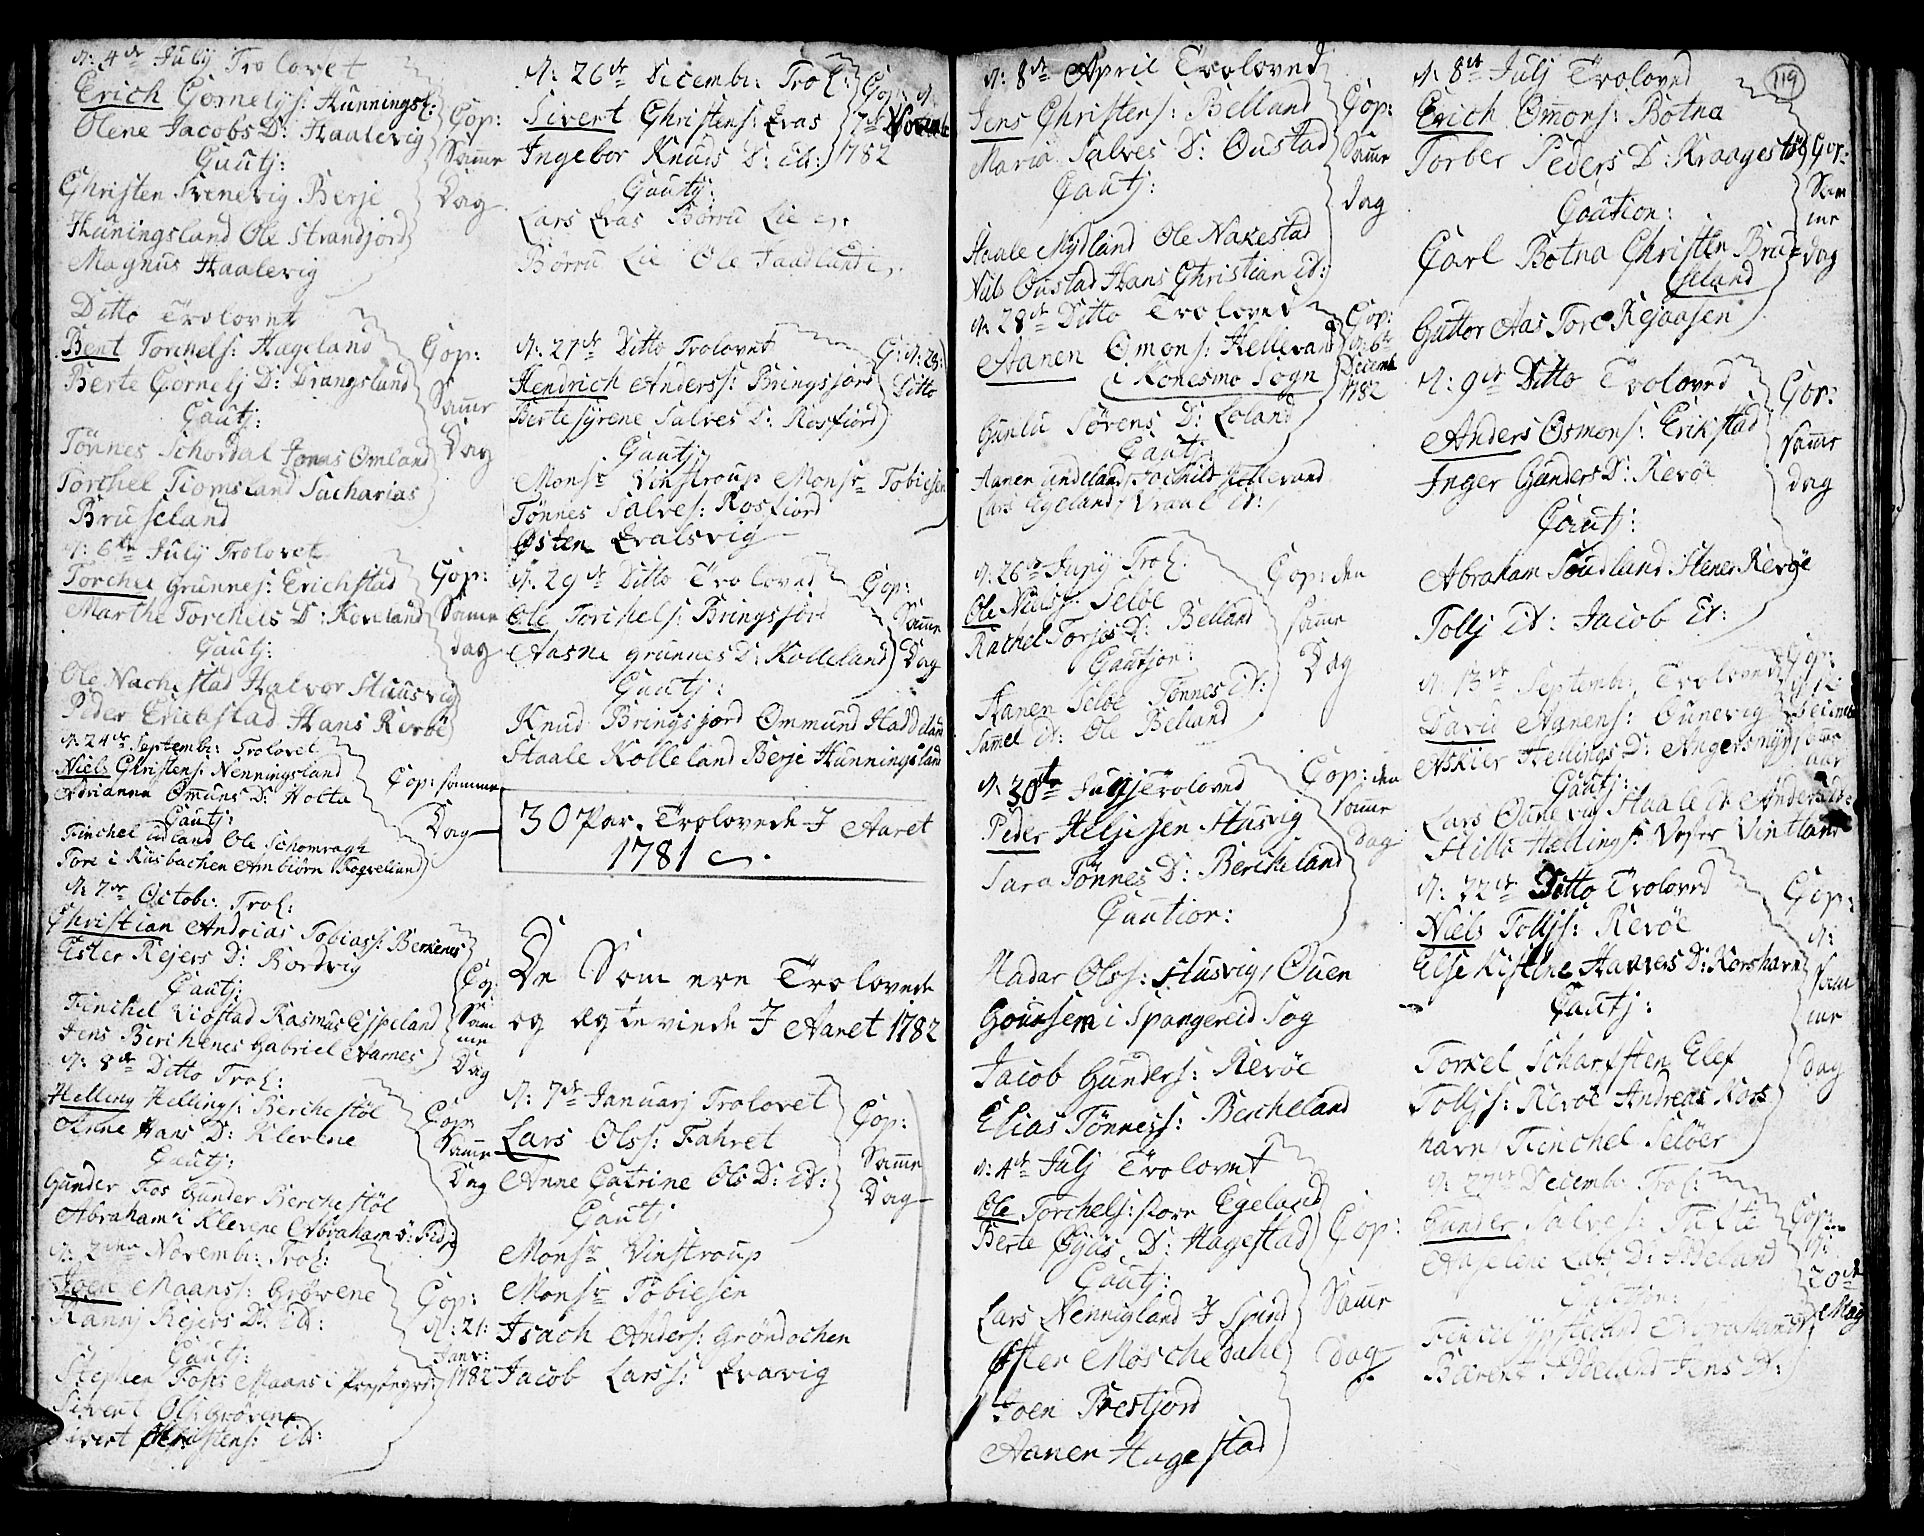 d: 4de July Trolovet
Erich Cornelys: Hunningsl:
Olene Jacobs D: Haalevig
Cautj:
Christen Svenevig Berje
Hunningsland Ole Strandjord
Magnus Haalevig
Cop:
Samme
Dag
Ditto Trolovet
Bent Torchels: Hageland
Berte Cornelj D: Drangsland
Cautj:
Tönnes Schordal Jonas Omland
Torchel Tiomsland Sacharias
Bruseland
Cop:
Samme
Dag
d: 6te July Trolovet
Torchel Grunnes: Erichstad
Marthe Torchels D: Koveland
Cautj:
Ole Nachestad Halvor Stuusvig
Peder Erichstad Hans Revöe
Cop:
Samme
dag
d: 24de Septembr: Trolovet
Niels Christens: Nenningsland
Adrianna Omuns D: Holta
Cautj:
Tinchel Ole Schomragh
Tore i Kusbachen Ambiörn
Cop: samme
Dag
d: 7de Octobr: Trol:
Christian Andrias Tobiass: Berkenes
Ester Rejers D: Rordvig
Cautj:
Tinchel Viostad Rasmus Espeland
Jens Berchenes Gabriel Aarnes
Cop:
Sam
me
Dag
d: 8de Ditto Trol:
Helling Hellings: Berchestöl
Anne Hans D: Klevene
Cautj:
Gunder Fos Gunder Berchestöl
Abraham i Klevene Abraham s: Fidje
Cop:
Samme
Dag
d: 2den Novembr: Trol:
Joen Maanss: Grövene
Ranni Rejers D: id:
Cautj:
Stephen Foss Maans i
Sivert Ols: Grövene
Sivert Christens: id:
Cop:
d: 21:
Janv:
1782
d: 26de Decembr: Trol:
Sivert Christens: Evas
Ingebor Knuds D: id:
Cautj:
Lars Evas Börru Lie
Börru Lie Ole Faadlund
Cop: d:
7de Novemb:
1782
d: 27de Ditto Trolovet
Hendrich Anderss: Bringsjord
Berte Syrene Salves D: Rosfiord
Cautj:
Monsr Vinstroup Monsr Tobiesen
Tönnes Salves: Rosfiord
Østen Evalsvig
C: d: 28:
Ditto
d: 29de Ditto Troloved
Ole Torchels: Bringsjord
Aasne Grunnes D: Kolleland
Cautj:
Knud Bringsjord Ommund Haddeland
Staale Kolleland Berje Hunningsland
Cop:
Samme
Dag
30 Par. Trolovede I Aaret
1781
De Som ere Trolovede
og Ægteviede I Aaret 1782
d: 7de Januarj Trolovet
Lars Olss: Fahret
Anne Catrine Ols D: id:
Cautj
Monsr Vinstroup
Monsr Tobiesen
Isach Anders: Gröndochen
Jacob Larss: Evavig
Cop:
Samme
Dag
119
d: 8de April Troloved
Jens Christens: Belland
Maria Salves D: Oustad
Cautj:
Staale Mydland Ole Nakestad
Nils Oustad Hans Christian id:
Cop:
Samme
dag
d: 28de Ditto Troloved
Aanen Omons: Hellevand
i Konesmo Sogn
Gunld Sörens D: Loland
Cautj:
Aanen Undeland Jochild Hellevand
Lars Egeland Vraal id:
Cop:
d: 6te
Decemb:
1782
d: 26de Junij Trol:
Ole Nielss: Selöe
Rachel Torjos D: Belland
Cautjon:
Aanen Selöe Tönnes id:
Sammel id: Ole Belland
Cop: den
samme
Dag
d: 30te Junj Troloved
Peder Heljesen Husvig
Sara Tönnes D: Bercheland
Caution:
Hadar Olss: Husvig Ouen
Goursem i Spangereid Sog
Jacob Gunders: Revöe
Elias Tönness: Bercheland
Cop: den
Samme
dag
d: 4de Julj Trolovet
Ole Torchels: store Egeland
Berte Öyüs D: Hagestad
Cautj:
Lars Nennigland I Spind
Øster Möschedahl
Joen Trestjord
Aanen Hagestad
Cop:
Samme
Dag
d: 8de Julj Troloved
Erich Omons: Botna
Torber Peders D: Kraagestöl
Caution:
Carl Botna Christen Bru-
seland
Guttor Aas Tore Rejaasen
Cop:
Sam
me
dag
d: 9de Ditto Troloved
Anders Osmons: Erikstad
Inger Gunders D: Revöe
Cautj:
Abraham Sundland Stener Revöe
Tollj id: Jacob id:
Cop:
samme
dag
d: 13de Septembr: Troloved
David Aanens: Ounevig
Askier Hellings D: Angersmyr
Cautj:
Lars Ounevig Staale id: Anders
Hilli Hellings: Veser Vintland
Cop:
Decemb:
samme
aar
d: 22de Ditto Troloved
Niels Tolljs: Revöe
Else Kistine Hanvers D: Korshavn
Cautj:
Torkel Scharfsten Elef
Tolljs: Revöe Andreas Kors
havn Tinchel Selöer
Cop:
d:
Sam
me
dag
d: 27de Decembr: Trol:
Gunder Salves:
Anselene Lars D: Ådeland
Cautjon:
Barent Ådeland Jens id:
Cop:
d:
20de
May